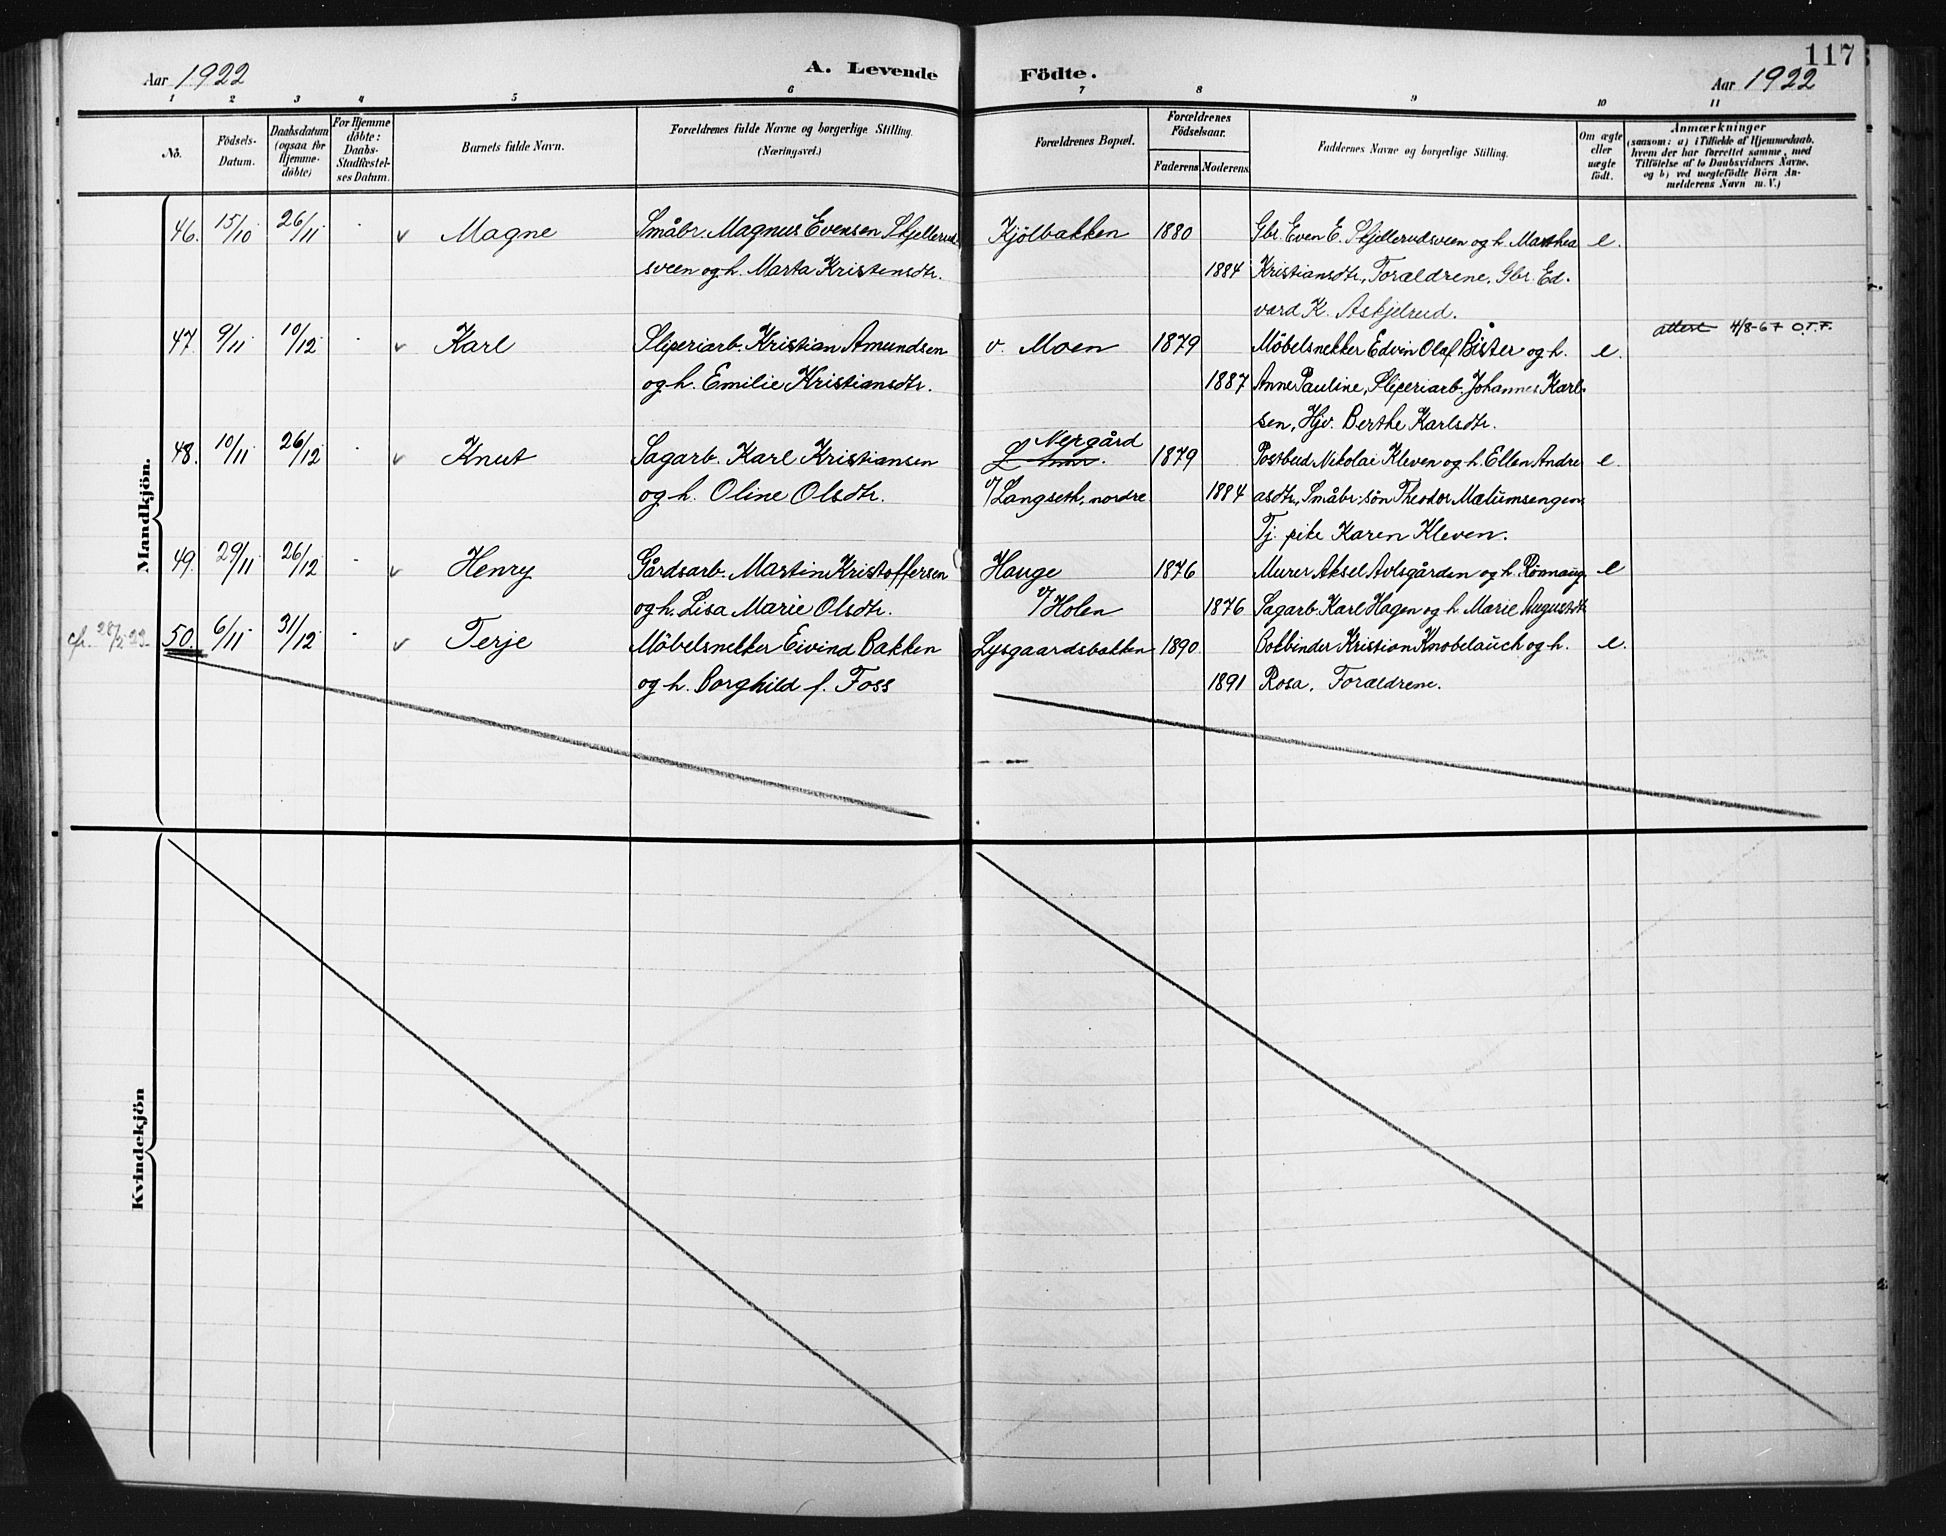 117
Aar 1922 A. Levende Födte. Aar 1922
1 2 3 4 5 6 7 8 9 10 11
No. Födsels-Datum. Daabsdatum (ogsaa for Hjemme-döbte) For Hjemme döbte: Daabs-Stadfæstel-ses Datum. Barnets fulde Navn. Forældrenes fulde Navne og borgerlige Stilling. (Næringsvei.) Forældrenes Bopæl. Forældrenes Födselsaar. Faderens Moderens Faddernes Navne og borgerlige Stilling. Om ægte eller uægte födt. Anmærkninger (saasom: a) i Tilfælde af Hjemmedaab, hvem der har forrettet samme, med Tilföielse af to Daabsvidners Navne, og b) ved uægtefödte Börn An-melderens Navn m. V.)
Mandkjön.
46. 15/10 26/11 - v Magne Småbr. Magnus Evensen Skjellerud- Kjölbakken 1880 Gbr. Even E. Skjellerudsveen og h. Marthea e.
sveen og h. Marta Kristensdtr. 1884 Kristiansdtr., Forældrene, Gbr. Ed-
vard K. Askjelrud.
47. 9/11 10/12 v Karl Sliperiarb. Kristian Amundsen v. Moen 1879 Möbelsnekker Edvin Olaf Bister og h. e. attest 4/8-67 O.T.F.
og h. Emilie Kristiansdtr. 1887 Anne Pauline, Sliperiarb. Johannes Karl-
sen, Hjv. Berthe Karlsdtr.
Nergård
48. 10/11 26/12 v Knut Sagarb. Karl Kristiansen 1879 Postbud Nikolai Kleven og h. Ellen Andre e.
og h. Oline Olsdtr. v/Langseth, nordre 1884 asdtr, Småbr. sön Theodor Mælumsengen,
Tj. pike Karen Kleven.
49. 29/11 26/12 - v Henry Gårdsarb. Martin Kristoffersen Hauge 1876 Murer Aksel Avlsgården og h. Rönnaug, e
og h. Lisa Marie Olsdtr. v/Holen 1876 Sagarb. Karl Hagen og h. Marie Augustdtr
28/2 23. 50. 6/11 31/12 - v Terje Möbelsnekker Eivind Bakken Lysgaardsbakken 1890 Bokbinder Kristian Knobelauch og h. e.
og h. Borghild f. Foss 1891 Rosa, Forældrene.
Kvindekjön